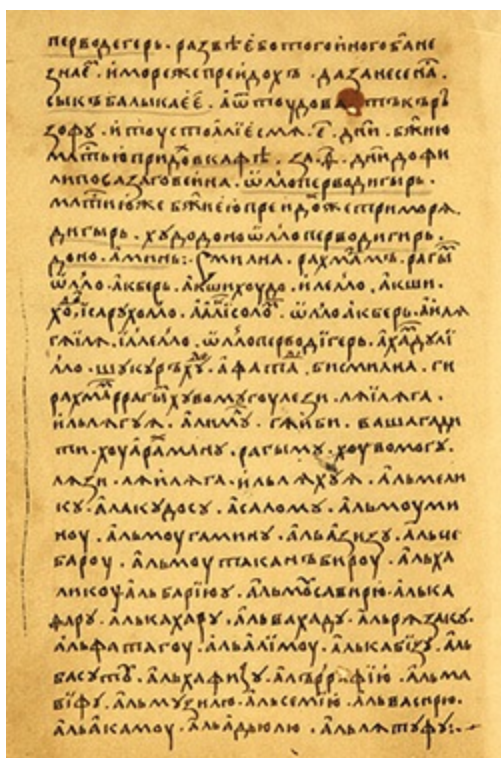 перводегерь. развѣ е҆ бо того иного бл҃ане
знаеⷨ. и҆ море же преидохъ. да занесе нⷭ҇а.
сыкъ балыкае є҆. а҆ ѿтоудова тъкъръ
зофу. и҆ тꙋ стоялі е҆смя. є҃. дн҃и. бж҃ию
млⷭ҇тью придоⷯ в кафѣ. за. ѳ҃. дн҃и до фи
липова заговеина. ѡ҆лло перводигырь.
млⷭ҇тию же бж҃иею преидоⷯ же три моря.
дигырь. худо доно ѡ҆лло перводигирь.
доно. а҆минь:· смилна. рахмⷨамъ. рагыⷨ
ѡ҆лло. акберь. акши хоудо. и҆лелло. акши.
хоⷣо, і҆са рухомо. а҆аліⷦ҇соломъ. ѡ҆лло акберь. а҆ иля
гяиля. і҆ллелло. ѡ҆лло перводі҆герь. а҆хаⷨдулі
лло. шукуръ хуⷣо. а҆фатаⷣ. бисмилна. ги
рахмаⷨ ррагыⷨ хувомугоулези. ляі҆ляга.
и҆льлягуя. а҆лимуⷨ. гяиби. вашагади
ти. хоуа҆раⷯману. рагыму. хоувомогу.
лязи. ля и҆ляга. и҆льляхуя. а҆льмели
ку. а҆лакудосу. асалому. а҆льмоуми
ноу. а҆льмоугамину. альа҆зизу. а҆льче
бароу. а҆льмоутаканъбироу. а҆льха
ликоу а҆льбариюу. а҆льмоусавирю. а҆лька
фару. а҆лькахару. а҆львахаду. а҆льрязаку.
а҆льфатагоу. альа҆лимоу. а҆лькабізу. а҆ль
басутꙋ. а҆льхафизу. а҆льррафию. а҆льма
віфу. а҆льмузилю. а҆льсемию. а҆львасирю.
а҆льа҆камоу. а҆льа҆дьюлю. а҆льлятуфу:·